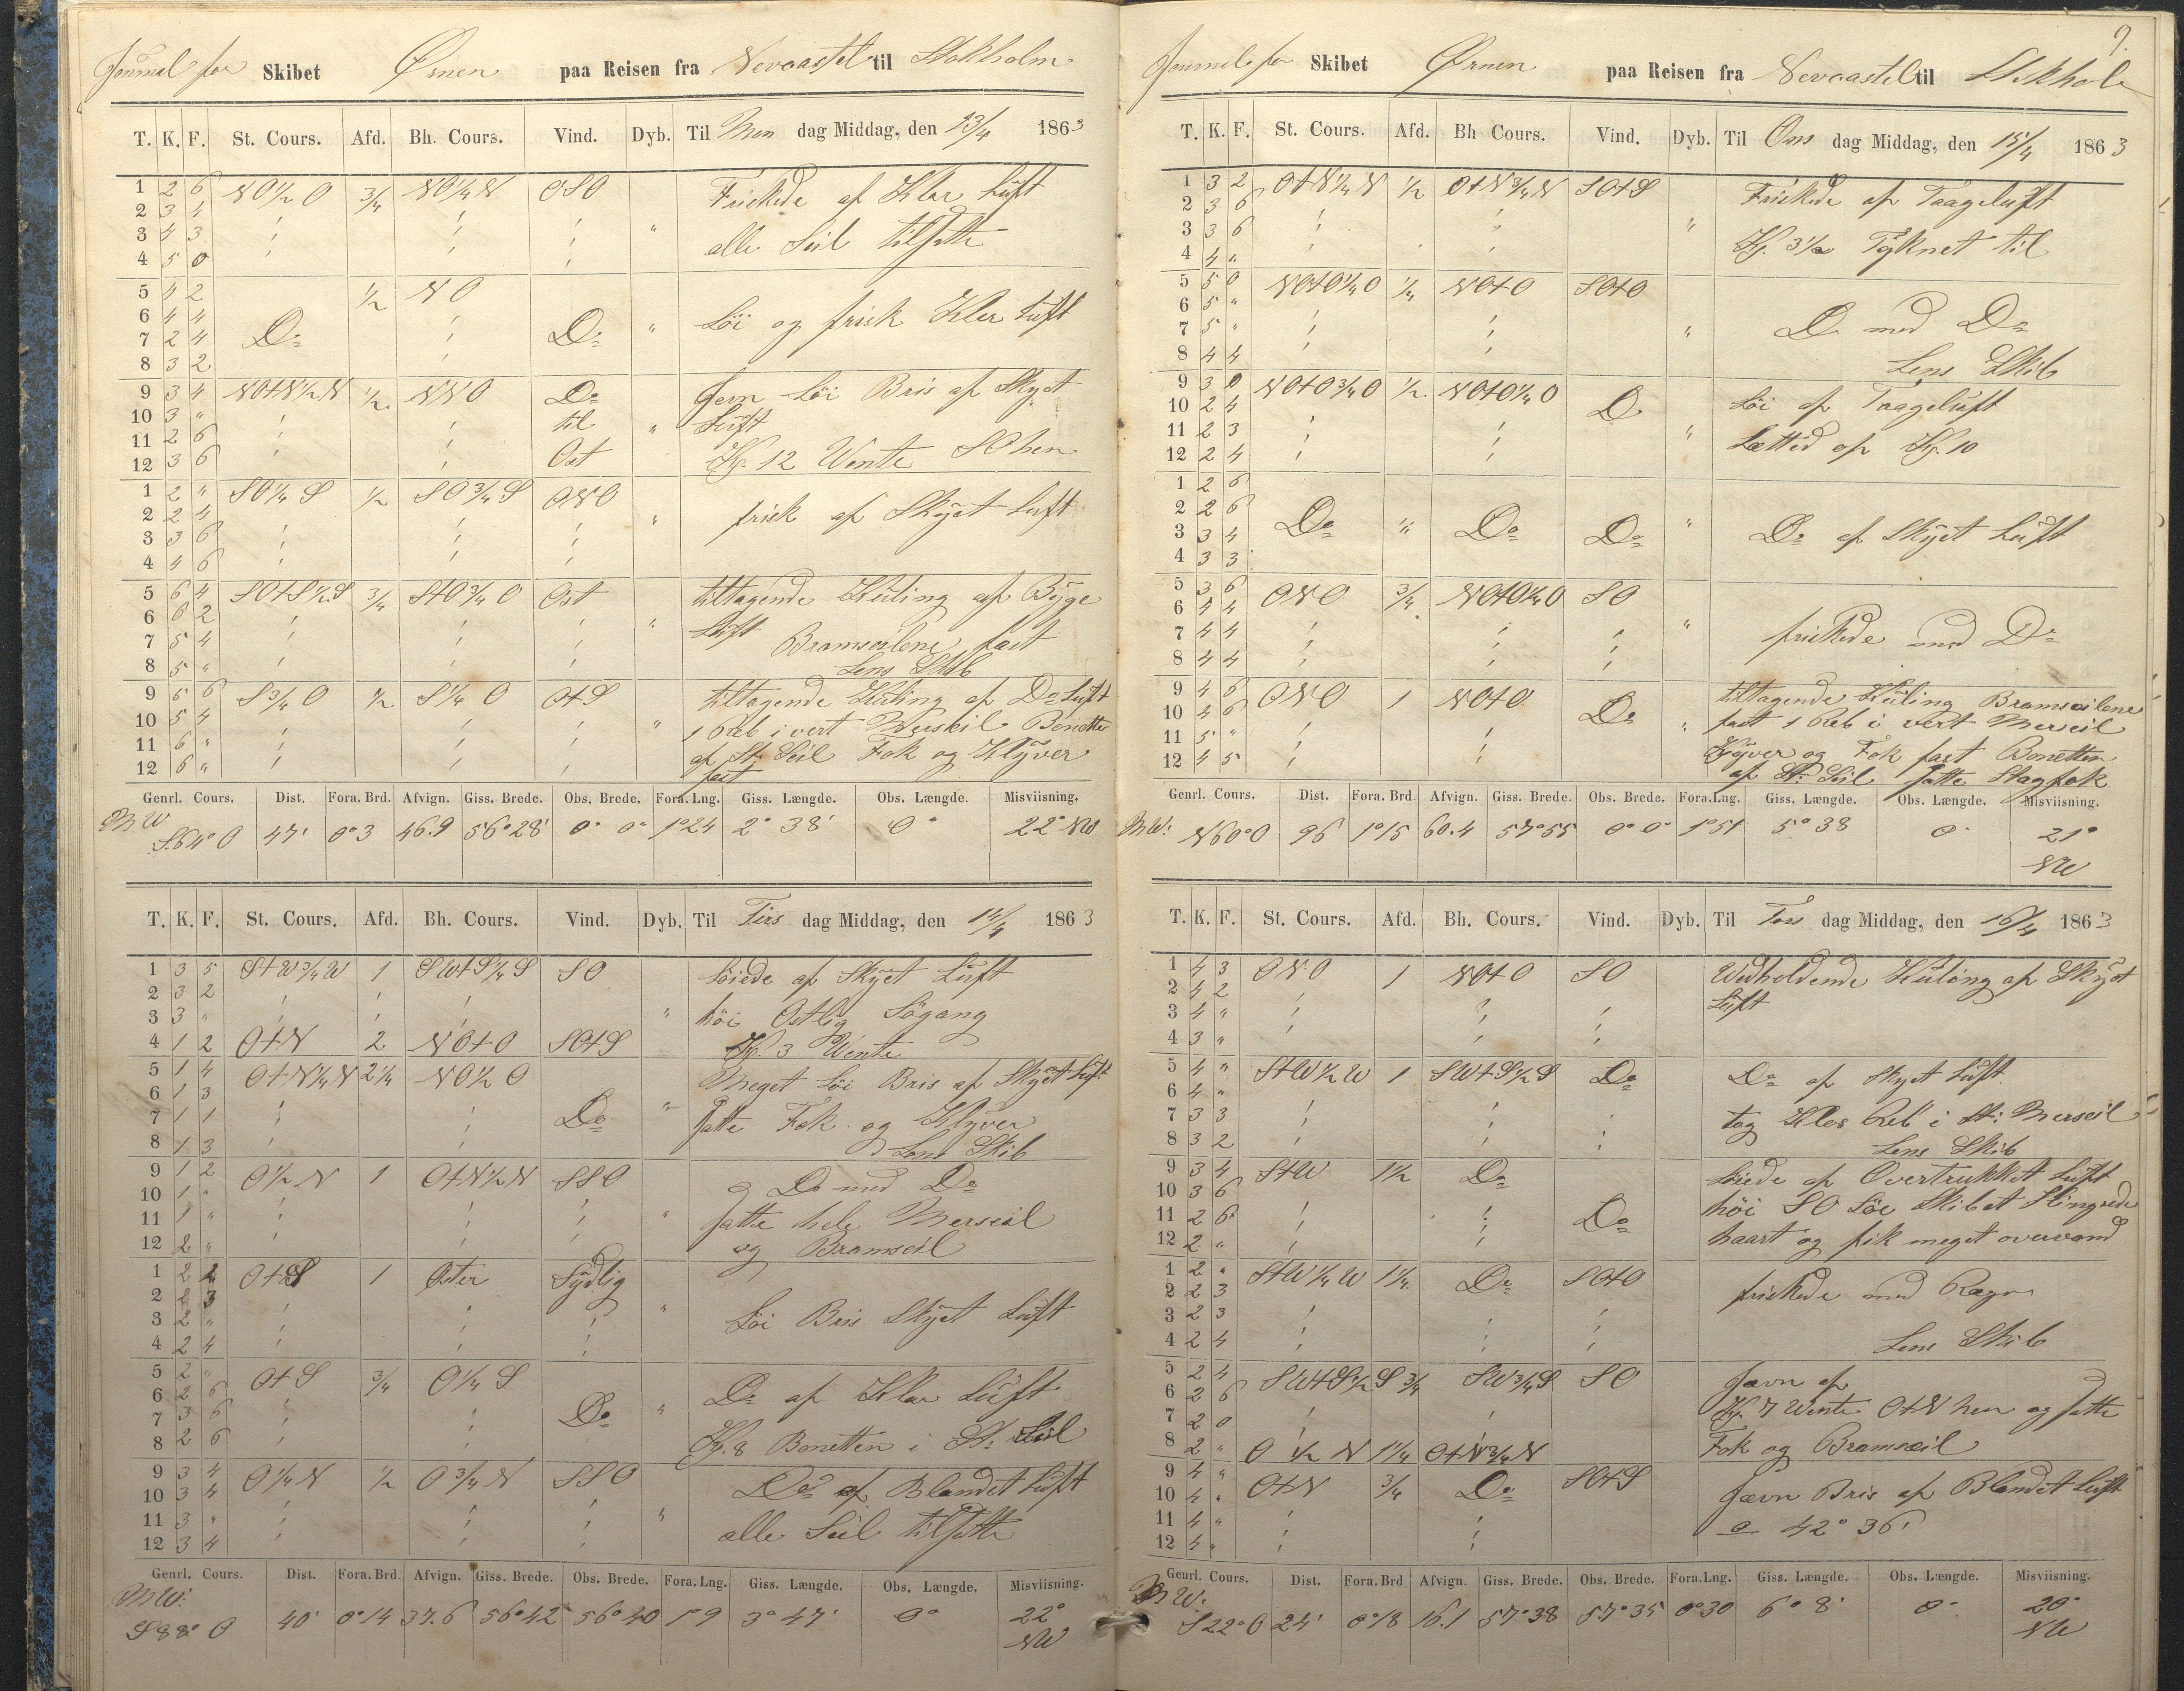 Journal for Skibet Ørnen paa Reisen fra Nevcastel til Stokholm
T. K. F. St. Cours. Afd. Bh. Cours. Vind. Dyb. Til Man dag Middag, den 13/4 1863
1 2 6 NO½O ¾ NO¼N OSO Friskede af Klar Luft
2 3 4
3 4 3 " alle Seil tilsatte
4 5 0
5 4 2 ½ NO
6 4 4 Løi og frisk Klar Luft
7 2 4 Do Do "
8 3 2
9 3 4 NOtN½N ½ NNO Do Jevn Løi Bris af Skyet
10 3 " til " Luft
11 2 6
12 3 6 Ost Kl. 12 Vente SO hen
1 2 " SO¼S ½ SO¾S ONO
2 2 4 " frisk af Skyet Luft
3 3 6
4 4 6
5 6 4 SOtS½S ¾ StO¾O Ost tiltagende Kuling af Byge
6 6 2 " Luft
7 5 4 Bramseilene fast
8 5 " Lens Skib
9 5 6 S¾O ½ S¼O OtS tiltagende Kuling af Do Luft
10 5 4 " 1 Reb i vert Merseil Bonetten
11 6 " af St: Seil Fok og Klyver
12 6 " fast
Genrl. Cours. Dist. Fora. Brd. Afvign. Giss. Brede. Obs. Brede. Fora. Lng. Giss. Længde. Obs. Længde. Misviisning.
MW S.64°O 47' 0°3 46.9 56°28' 0° 0° 1°24 2° 38' 0° 22° NW
T. K. F. St. Cours. Afd. Bh. Cours. Vind. Dyb. Til Tirs dag Middag, den 14/4 1863
1 3 5 StW¾W 1 SWtS¼S SO Løiede af Skyet Luft
2 3 2
3 3 " " høi Ostlig Søgang
4 1 2 OtN 2 NOtO SOtS Kl. 3 Vente
5 1 4 OtN¼N 2¼ NO½O Meget Løi Bris af Skyet Luft
6 1 3
7 1 1 Do " satte Fok og Klyver
8 1 3 Lens Skib
9 1 2 O½N 1 OtN½N SSO Do med Do
10 1 "
11 1 " " satte hele Merseil
12 2 " og Bramseil
1 2 2 OtS 1 Oster Sydlig
2 2 3 "
3 2 " Løi Bris Skyet Luft
4 2 4
5 2 " OtS ¾ O¼S Do af Klar Luft
6 2 6 "
7 3 6 Do
8 2 6 Kl. 8 Bonetten i St: Seil
9 3 4 O¼N ½ O¾N SSO Do af Blandet Luft
10 3 4
11 3 " " alle Seil tilsatte
12 3 4
Genrl. Cours. Dist. Fora. Brd. Afvign. Giss. Brede. Obs. Brede. Fora. Lng. Giss. Længde. Obs. Længde. Misviisning.
MW: S 88° O 40' 0°14 37.6 56°42 56°40 1°9 3° 47' 0° 22° NW
9.
Journal for Skibet Ørnen paa Reisen fra Nevcastel til Stokhol
T. K. F. St. Cours. Afd. Bh Cours. Vind. Dyb. Til Ons dag Middag, den 15/4 1863
1 3 2 OtN¼N ½ OtN¾N SOtS Friskede af Taageluft
2 3 6
3 3 6 " Kl. 3½ Tyknet til
4 4 "
5 5 0 NOtO¼O ¼ NOtO SOtO
6 5 "
7 5 " " Do med Do
8 4 4 Lens Skib
9 3 0 NOtO¾O ½ NOtO¼O Løi af Taageluft
10 2 4 Do
11 2 3 " Letted op Kl. 10
12 2 4
1 2 6
2 2 6 Do " Do Do " Do af Skyet Luft
3 3 4
4 3 3
5 3 6 ONO ¾ NOtO¼O SO
6 4 4
7 4 4 " friskede med Do
8 4 4
9 4 6 ONO 1 NOtO tiltagende Kuling Bramseilene
10 4 6 Do " fast 1 Reb i vert Merseil
11 5 " Klyver og Fok fast Bonetten
12 4 5 af St: Seil satte Stagfok
Genrl. Cours. Dist. Fora. Brd. Afvign. Giss. Brede. Obs. Brede. Fora. Lng. Giss. Længde. Obs. Længde. Misviisning.
MW: N60°O 96 1°15 60.4 57°55 0° 0° 1°51 5° 38 0° 21° NW
T. K. F. St. Cours. Afd. Bh. Cours. Vind. Dyb. Til Tors dag Middag, den 16/4 1863
1 4 3 ONO 1 NOtO SO Vedholdende Kuling af Skyet
2 4 2 Luft
3 4 "
4 3 "
5 4 " StW½W 1 SWtS½S Do Do af Skyet Luft
6 4 "
7 3 3 tog Klos Reb i St: Merseil
8 3 2 Lens Skib
9 3 4 StW 1½ Do Løiede af Overtrukket Luft
10 3 6 høi SO Søe Skibet Slingrede
11 2 6 Do
12 2 " haart og fik meget overvand
1 2 " StW¼W 1¼ Do SOtO friskede med Regn
2 2 3
3 2 3
4 2 4 Lens Skib
5 2 4 SWtS½S ¾ SW¾S SO Jævn af Do
6 2 6 Kl. 7 Vente OtN hen og satte
7 2 0
8 2 " O ½ N 1¼ OtN¾N Fok og Bramseil
9 4 " OtN ¾ Do SOtS Jævn Bris af Blandet Luft
10 4 "
11 4 " 42° 36'
12 4 "
Genrl. Cours. Dist. Fora. Brd Afvign. Giss. Brede. Obs. Brede. Fora. Lng. Giss. Længde. Obs. Længde. Misviisning.
MW: S22°O 24' 0°18 16.1 57°38 57°35 0°30 6° 8' 0° 20° NW